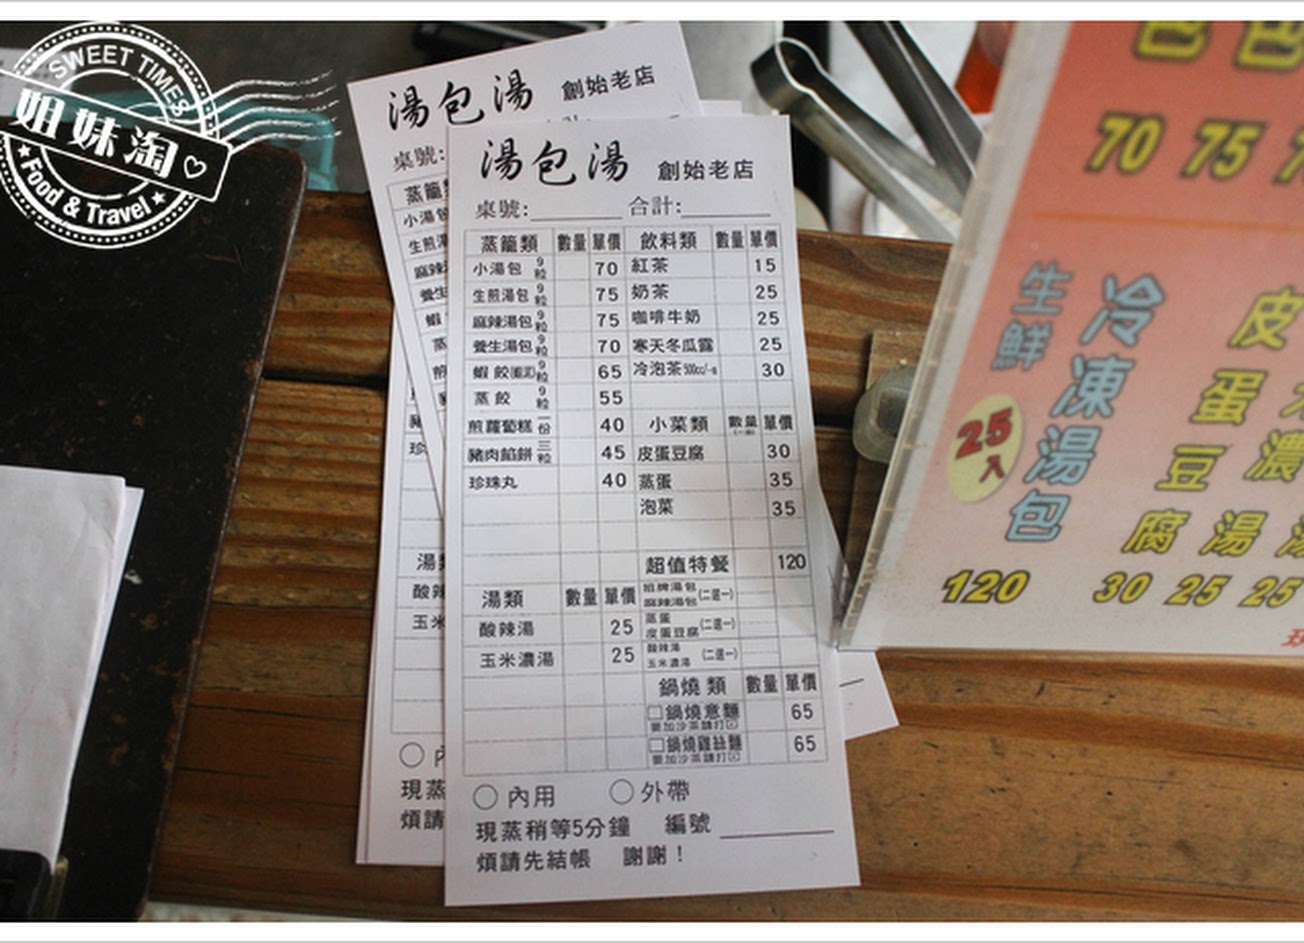 SWEET TIMES
姐妹淘
Food & Travel
湯包湯 創始老店
桌號:
湯包湯 創始老店
桌號: 合計:
蒸籠類 數量 單價 飲料類 數量 單價
小湯包 9粒 70 紅茶 15
生煎湯包 9粒 75 奶茶 25
麻辣湯包 9粒 75 咖啡牛奶 25
養生湯包 9粒 70 寒天冬瓜露 25
蝦餃 9粒 65 冷泡茶 500cc 30
蒸餃 9粒 55
煎蘿蔔糕 一份 40 小菜類 數量 單價
豬肉餡餅 三粒 45 皮蛋豆腐 30
珍珠丸 40 蒸蛋 35
泡菜 35
超值特餐 120
湯類 數量 單價 招牌湯包 麻辣湯包 (二選一)
酸辣湯 25 蒸蛋 皮蛋豆腐 (二選一)
玉米濃湯 25 酸辣湯 玉米濃湯 (二選一)
鍋燒類 數量 單價
□鍋燒意麵 65
要加沙茶請打☑
□鍋燒雞絲麵 65
要加沙茶請打☑
○內用 ○外帶
現蒸稍等5分鐘 編號
煩請先結帳 謝謝!
70 75
生鮮
冷凍湯包
25入
120
皮蛋豆腐
30 25 25